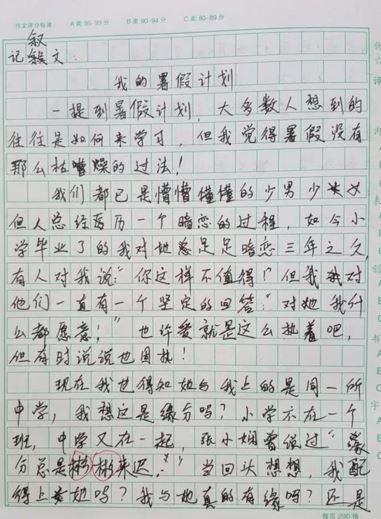 作文评分标准： A类95-99分 B类90-94分 C类80-89分
叙
记叙文：
我的暑假计划
一提到暑假计划，大多数人想到的
往往是如何来学习，但我觉得暑假没有
那么枯燥的过法！
我们都已是懵懵懂懂的少男少女
但人总经历一个暗恋的过程，如今小
学毕业了的我对她足足暗恋三年之久，
有人对我说：“你这样不值得！”但我对
他们一直有一个坚定的回答：“对她我什
么都愿意！”也许爱就是这么执着吧，
但有时说说也固执！
现在我也得知她与我上的是同一所
中学，我想这是缘分吗？小学不在一个
班，中学又在一起，张小娴曾说过“缘
分总是彬彬来迟。”当回头想想，我配
得上她吗？我与她真的有缘吗？还是
每页290格